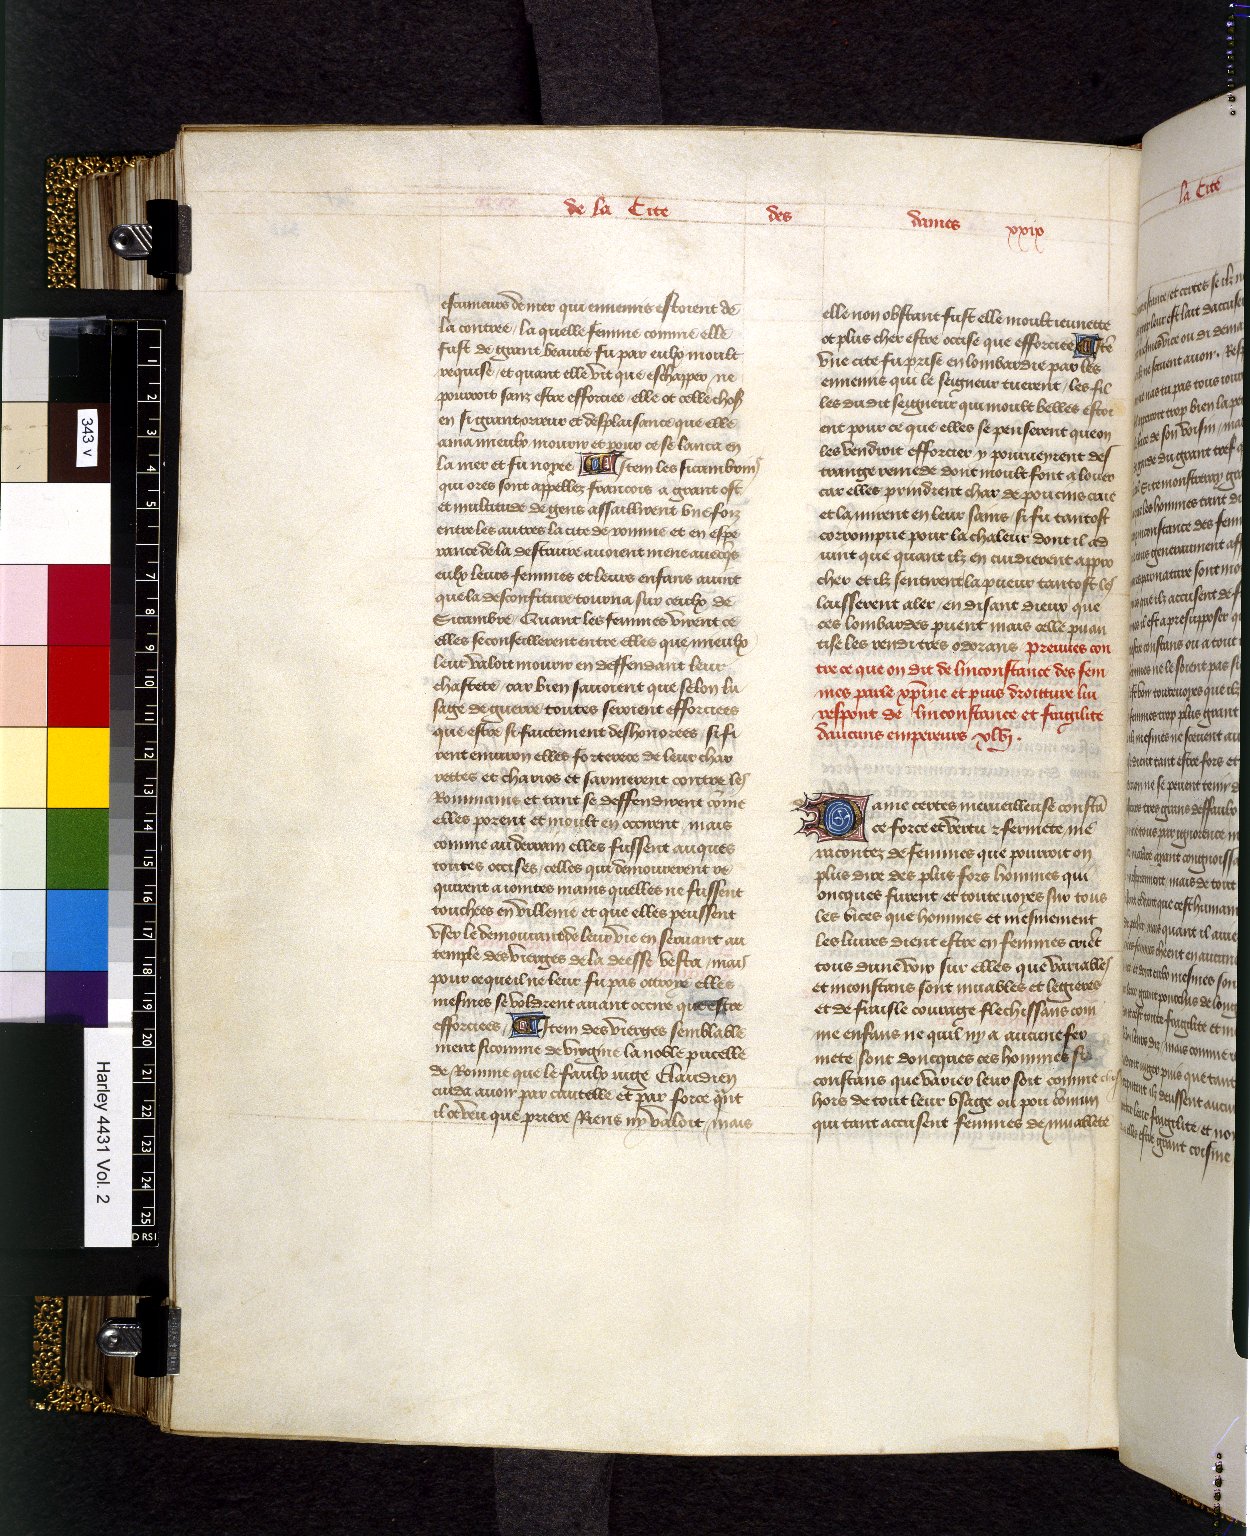 de la Cite des dames xxix
escumeurs de mer qui ennemis estoient de
la contree / la quelle femme comme elle
fust de grant beaute fu par eulx moult
requise / et quant elle vit que eschapper ne
pouoit sanz estre efforciee / elle ot celle chose
en si grant orreur et desplaisance que elle
ama mieulx mourir et pour ce se lanca en
la mer et fu noyee Item les sicambriens
qui ores sont appellez francois a grant ost
et multitude de gens assaillirent une foiz
entre les autres la cite de romme et en espe
rance de la destruire auoient mene auecqs
eulx leurs femmes et leurs enfans auint
que la desconfiture tourna sur ceulx de
Sicambre / Quant les femmes virent ce
elles se conseillerent entre elles que mieulx
leur valoit mourir en deffendant leur
chastete / car bien sauoient que selon lu
sage de guerre toutes seroient efforciees
que estre si faictement deshonorees / si fi
rent enuiron elles forterece de leur char
rettes et charios et sarmerent contre les
Rommains et tant se deffendirent cõme
elles porent et moult en occirent / mais
comme au derrain elles fussent auques
toutes occises / celles qui demourerent re
quirent a iointes mains quelles ne fussent
touchees en villenie et que elles peussent
user le demourant de leur vie en seruant au
temple des vierges de la deesse vesta / mais
pour ce que il ne leur fu pas ottroye elles
mesmes se voldrent auant occire que estre
efforciees / Item des vierges semblable
ment si comme de virgine la noble pucelle
de Romme que le faulx iuge Claudien
cuida auoir par cautelle et par force qñt
il ot veu que priere Riens ny valoit / mais
elle non obstant fust elle moult ieunette
ot plus cher estre occise que efforciee Itē
vne cite fu prise en lombardie par les
ennemis qui le seigneur tuerent / les fil
les dudit seigneur qui moult belles estoi
ent pour ce que elles se penserent que on
les vendroit efforcier y pourueyrent des
trange remede dont moult font a louer
car elles prindrent char de poucins crue
et la mirent en leur sains / si fu tantost
corrompue pour la chaleur dont il ad
uint que quant ilz en cuidierent appro
cher et ilz sentirent la pueur tantost les
laisserent aler / en disant dieux que
ces lombardes puent mais celle puan
tise les rendi tres odorans preuues con
tre ce que on dit de linconstance des fem
mes parle xpine et puis droitture lui
respont de linconstance et fragilite
daucuns empereurs xlvii .
Dame certes merueilleuse constã
ce force et vertu & fermete mẽ
racontez de femmes que pourroit on
plus dire des plus fors hommes qui
oncques furent et toutevoyes sur tous
les vices que hommes et mesmement
les liures dient estre en femmes criẽt
tous dune voix sur elles que variables
et inconstans sont muables et legieres
et de fraisle courage flechissans com
me enfans ne quil ny a aucune fer
mete sont doncques ces hommes si
constans que varier leur soit comme
hors de tout leur usage ou pou cõmun
qui tant accusent femmes de muablete
la Cite
343 v
Harley 4431 Vol. 2